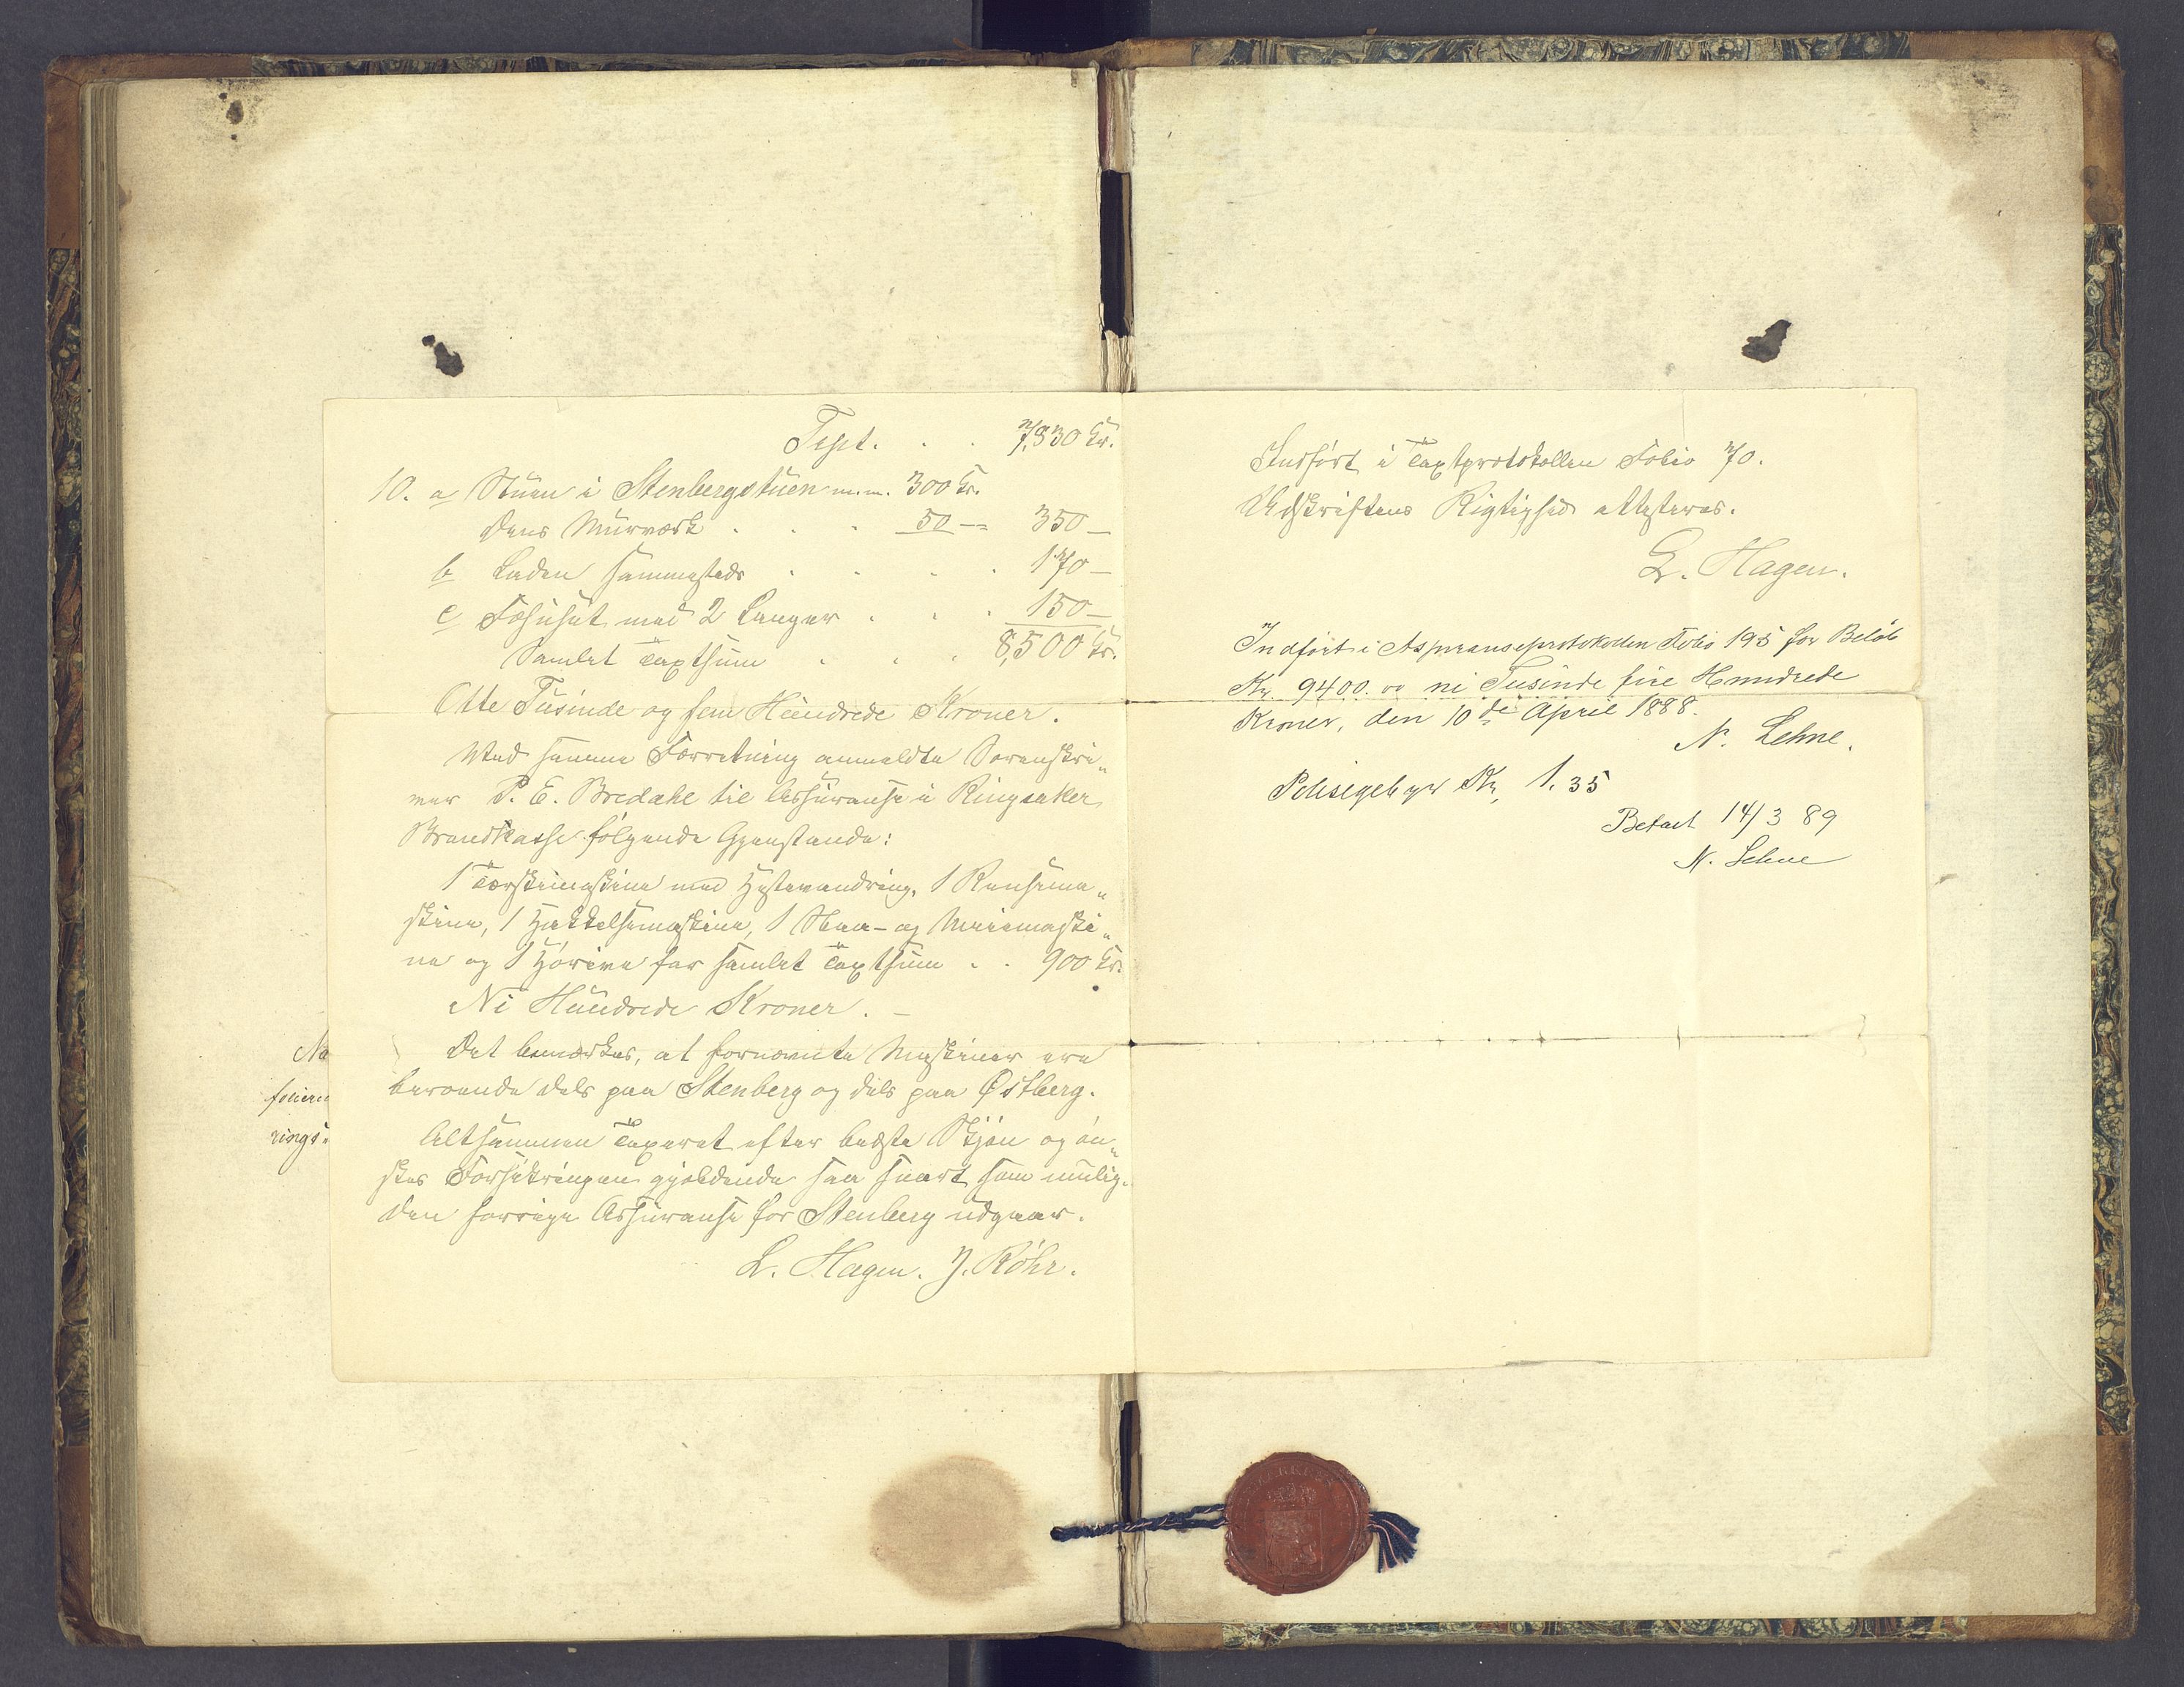 Tspt. . . 7,830 Kr.
10. a Stuen i Stenbergstuen m.m. 300 Kr.
Dens Murværk . . . 50 – = 350 –
b Laden sammesteds . . . . 170 –
c Fæhuset med 2 Længer . . . 150 –
Samlet Taxtsum . . . 8,500 Kr.
Otte Tusinde og fem Hundrede Kroner.
Ved samme Forretning anmeldte Sorenskri„
ver P. E. Bredahl til Assuranse i Ringsaker
Brandkasse følgende Gjenstande:
1 Tærskemaskine med Hestevandring, 1 Rensema„
skine, 1 Hakkelsemaskine, 1 Slaa- og Meiemaski„
ne og 1 Hørive for samlet Taxtsum . . 900 Kr.
Ni Hundrede Kroner. –
Det bemærkes, at fornævnte Maskiner ere
beroende dels paa Stenberg og dels paa Østberg.
Altsammen Taxeret efter bedste Skjøn og øn„
skes Forsikringen gjældende saa snart som mulig.
Den forrige Assuranse for Stenberg udgaar.
L. Hagen. J. Röhr.
No
folieren
rings„
Indført i Taxtprotokollen Folio 70.
Udskriftens Rigtighed attesteres.
L. Hagen.
Indført i Assuranseprotokollen Folio 195 for Beløb
Kr. 9400.00 ni Tusinde fire Hundrede
Kroner, den 10de April 1888.
N. Lehne.
Polisegebyr Kr, 1.35
Betalt 14/3 89
N. Lehne